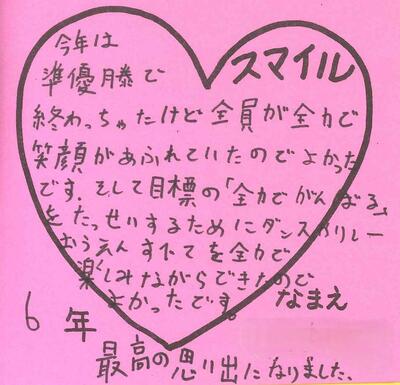 今年は
スマイル
準優勝で
終わっちゃたけど全員が全力で
笑顔があふれていたのでよかった
です。そして目標の「全力でがんばる」
をたっせいするためにダンスやリレー
おうえんすべてを全力で
楽しみながらできたので
よかったです。
なまえ
6年
最高の思い出になりました。